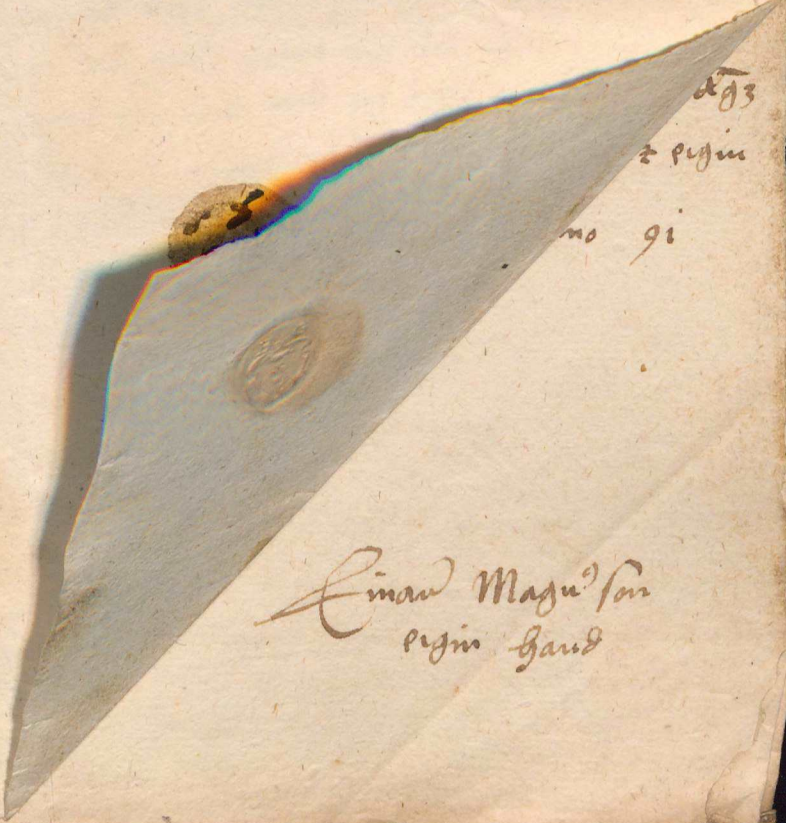 ꝛ eigin
no 91
Einar Magnꝰson
eigin hand